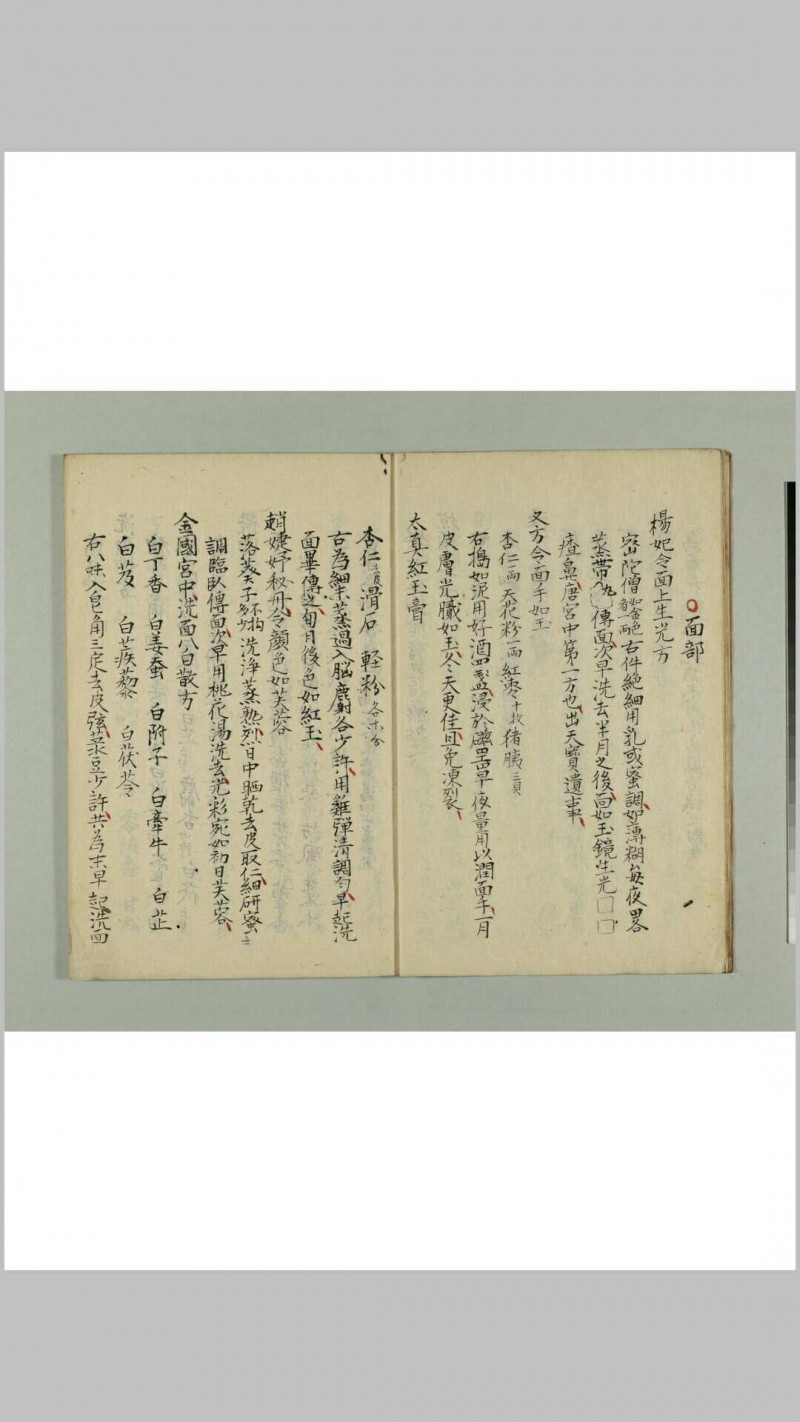 面部
楊妃令面上生光方
密陀僧如金色者一両右件絶細用乳或蜜調如薄糊毎夜畧
蒸帯傅面次早洗去半月之後面如玉鏡生光□□
瘡鼻唐宮中第一方也出天寶遺事
又方令面手如玉
杏仁一両天花粉一両紅棗十枚猪胰三具
右搗如泥用好酒四盞浸於磁噐早夜量用以潤面手一月
皮膚光膩如玉冬天更佳且免凍裂
太真紅玉膏
杏仁去皮滑石 軽粉各等分
右為細末蒸過入脳麝各少許用雞彈清調匀早起洗
面畢傅之旬月後色如紅玉
趙婕妤秘丹令顔色如芙蓉
落葵子不拘多少洗淨蒸熟烈日中晒乾去皮取仁細研蜜
調臨臥傅面次早用桃花湯洗去光彩宛如初日芙蓉
金國宮中洗面八白散方
白丁香 白姜蚕 白附子 白牽牛 白芷
白芨 白蒺藜 白茯苓
右八味入皂角三定去皮弦菉豆少許共為末早起洗面